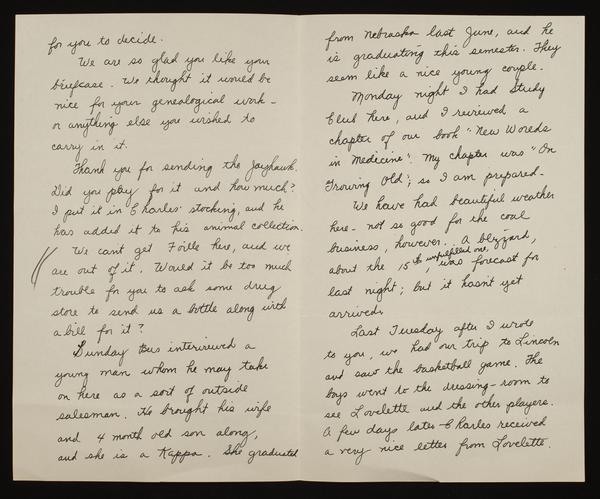 for you to decide.
We are so glad you like your
briefcase. We thought it would be
nice for your geneological work –
or anything else you wished to
carry in it.
Thank you for sending the Jayhawk.
Did you pay for it and how much?
I put it in Charles' stocking, and he
has added it to his animal collection.
We can't get Foille here, and we
are out of it. Would it be too much
trouble for you to ask some drug
store to send us a bottle along with
a bill for it?
Sunday Bus interviewed a
young man whom he may take
on here as a sort of outside
salesman. He brought his wife
and 4 month old son along,
and she is a Kappa. She graduated
from Nebraska last June, and he
is graduating this semester. They
seem like a nice young couple.
Monday night I had Study
Club here, and I reviewed a
chapter of our book "New Words
in Medicine". My chapter was "On
Growing Old"; so I am prepared.
We have had beautiful weather
here – not so good for the coal
business, however. A blizzard,
about the 15th unfulfilled one, was forecast for
last night; but it hasn't yet
arrived.
Last Tuesday after I wrote
to you, we had our trip to Lincoln
and saw the basketball game. The
boys went to the dressing-room to
see Lovellette and the other players.
A few days later Charles received
a very nice letter from Lovellette.